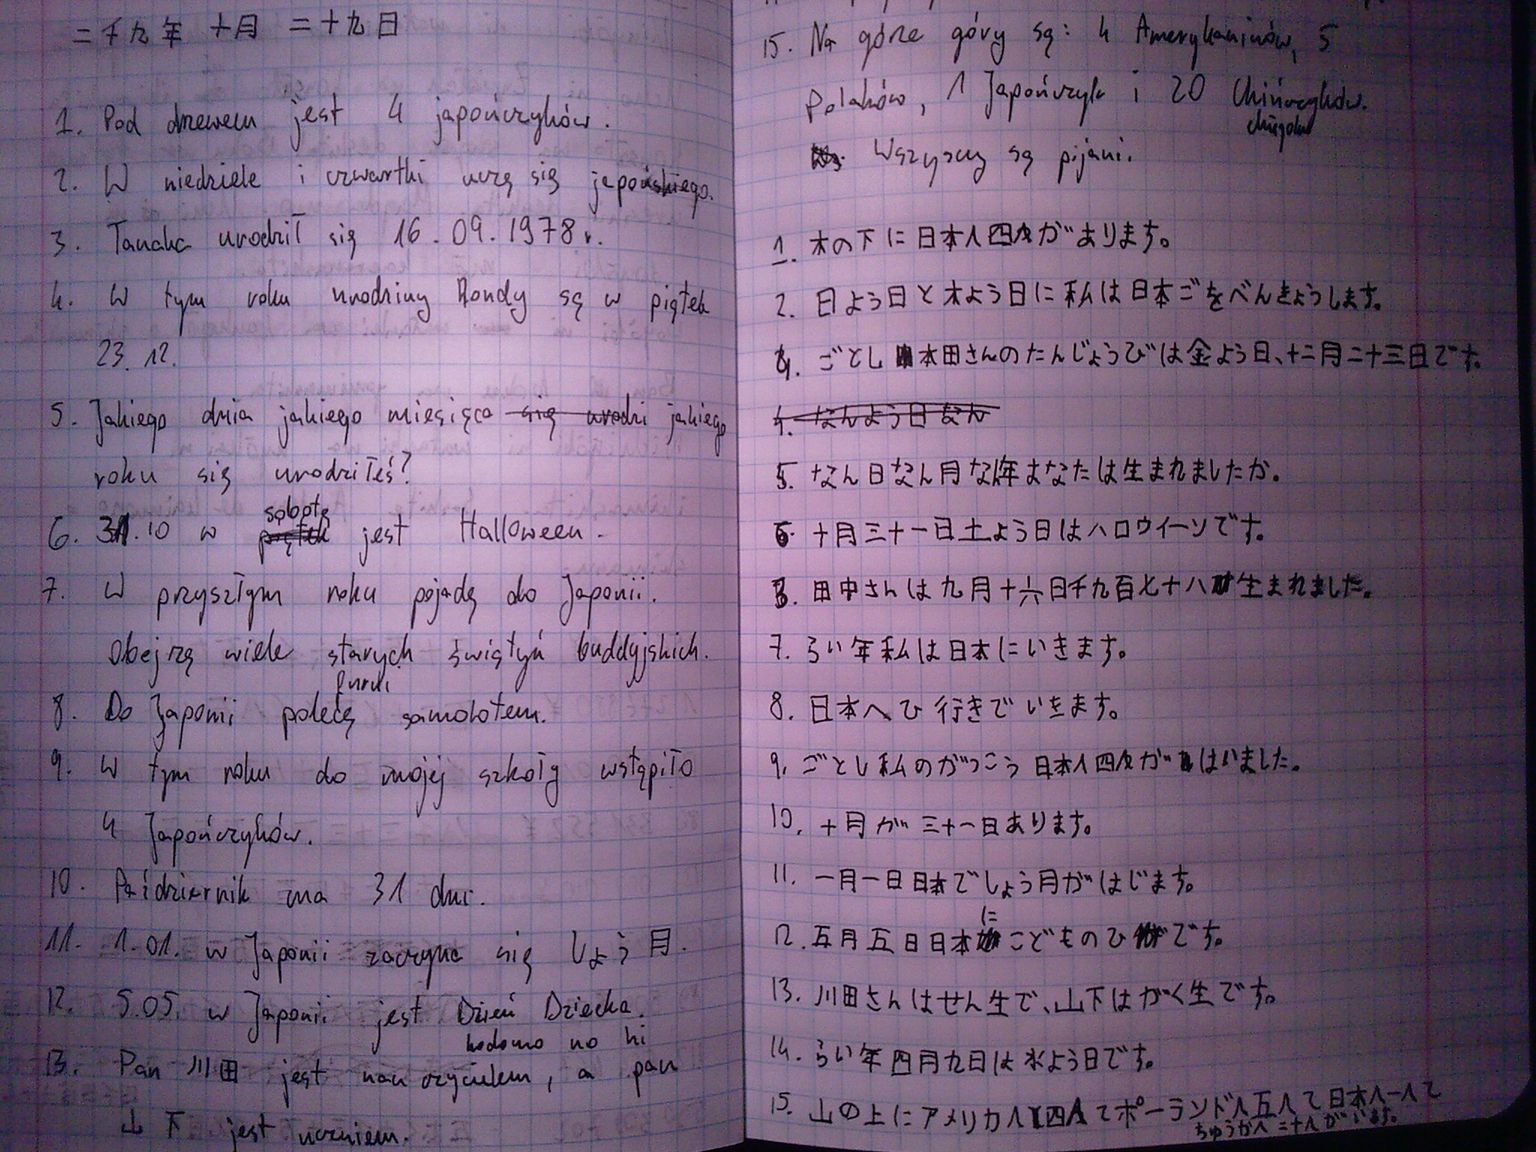 二千九年 十月 二十九日
1. Pod drzewem jest 4 japończyków.
2. W niedziele i czwartki uczę się japońskiego.
3. Tanaka urodził się 16.09.1978 r.
4. W tym roku urodziny Hondy są w piątek
23.12.
5. Jakiego dnia jakiego miesiąca się urodzi jakiego
roku się urodziłeś?
sobotę
6. 31.10 w piątek jest Halloween.
7. W przyszłym roku pojadę do Japonii.
Obejrzą wiele starych świątyń buddyjskich.
furui
8. Do Japonii polecę samolotem.
9. W tym roku do mojej szkoły wstąpiło
4 Japończyków.
10. Październik ma 31 dni.
11. 1.01. w Japonii zaczyna się しょう月.
12. 5.05. w Japonii jest Dzień Dziecka.
kodomo no hi
13. Pan 川田 jest nauczycielem, a pan
山下 jest uczniem.
15. Na górze góry są: 4 Amerykaninów, 5
Polaków, 1 Japończyk i 20 Chińczyków.
Wszyscy są pijani.
1. 木の下に日本人四人があります。
2. 日よう日と木よう日に私は日本ごをべんきょうします。
4. ごとし本田さんのたんじょうびは金よう日、十二月二十三日です。
4. なんよう日なん
5. なん日なん月なん年あなたは生まれましたか。
6. 十月三十一日土よう日はハロウイーンです。
3. 田中さんは九月十六日千九百七十八生まれました。
7. らい年私は日本にいきます。
8. 日本へひ行きでいきます。
9. ごとし私のがっこう日本人四人がはいました。
10. 十月が三十一日あります。
11. 一月一日日本でしょう月がはじます。
に
12. 五月五日日本こどものひです。
13. 川田さんはせん生で、山下はがく生です。
14. らい年四月九日は水よう日です。
15. 山の上にアメリカ人四人てポーランド人五人て日本人一人て
ちゅうか人二十人がいます。